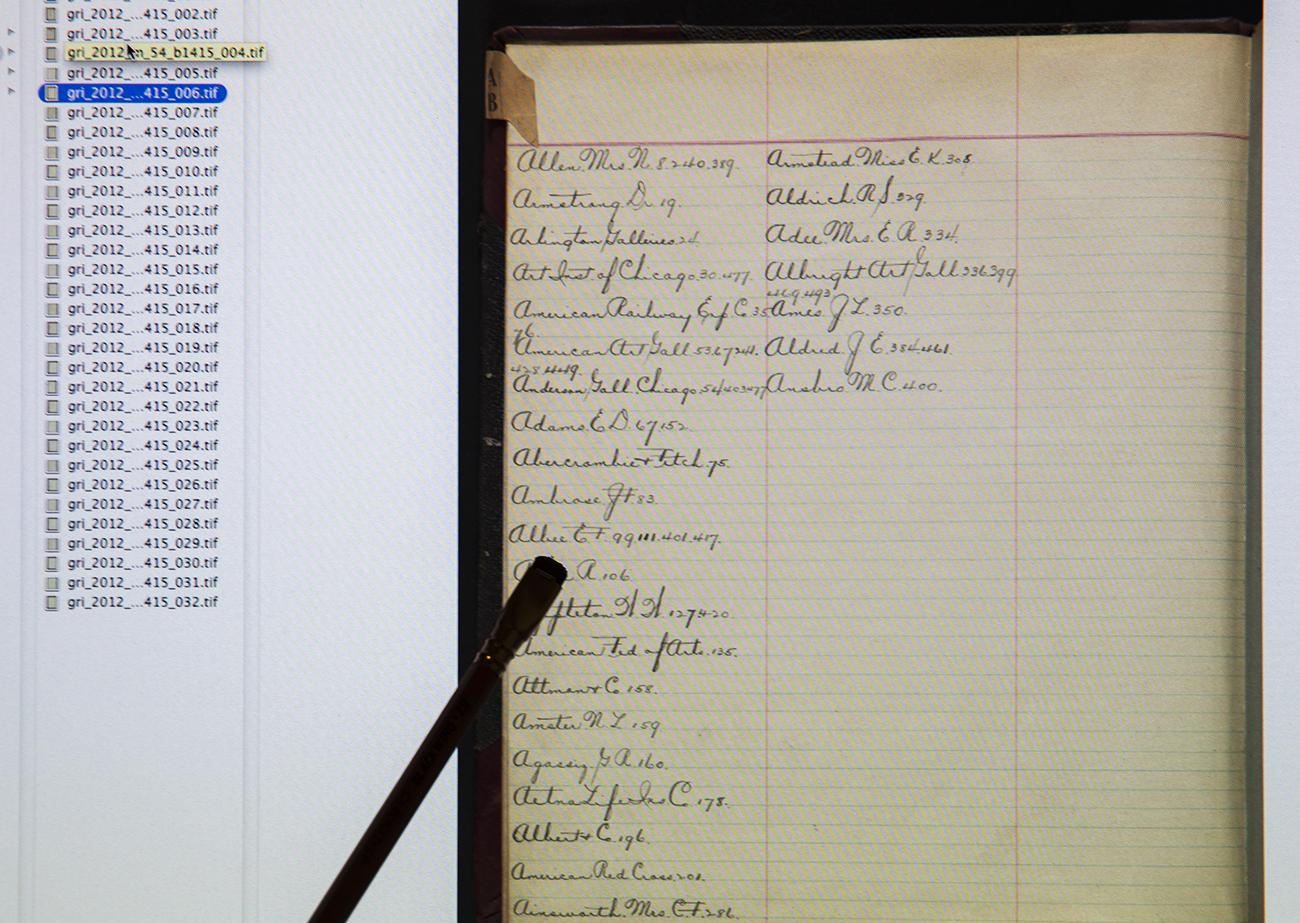 gri_2012_...415_002.tif
gri_2012_...415_003.tif
gri_2012_m_54_b1415_004.tif
gri_2012_...415_005.tif
gri_2012_...415_006.tif
gri_2012_...415_007.tif
gri_2012_...415_008.tif
gri_2012_...415_009.tif
gri_2012_...415_010.tif
gri_2012_...415_011.tif
gri_2012_...415_012.tif
gri_2012_...415_013.tif
gri_2012_...415_014.tif
gri_2012_...415_015.tif
gri_2012_...415_016.tif
gri_2012_...415_017.tif
gri_2012_...415_018.tif
gri_2012_...415_019.tif
gri_2012_...415_020.tif
gri_2012_...415_021.tif
gri_2012_...415_022.tif
gri_2012_...415_023.tif
gri_2012_...415_024.tif
gri_2012_...415_025.tif
gri_2012_...415_026.tif
gri_2012_...415_027.tif
gri_2012_...415_028.tif
gri_2012_...415_029.tif
gri_2012_...415_030.tif
gri_2012_...415_031.tif
gri_2012_...415_032.tif
A
B
Allen. Mrs. N. 8.240.389.
Armstrong Dr. 19.
Arlington Galleries 24.
Art Inst. of Chicago. 30.477.
American Railway Exp. C 35
76.
American Art Gall. 53.67.241.
425.449.
Anderson Gall. Chicago.
Adams. E D. 67 152.
Abercrombie & Fitch. 75.
Ambrose J H 83.
Albee E F. 99 111.401.417.
A. 106.
W. W. 127 420.
American Fed of Arts. 135.
Altman & C. 158.
Amster N. L. 159
Agassiz G R. 160.
Aetna Life Ins C. 178.
Albert & C. 196.
American Red Cross. 201.
Ainsworth. Mrs. C. F. 286.
Armstead. Miss E. K. 308.
Aldrich. R S. 329.
Adee. Mrs. E. R 334.
Albright Art Gall 336.399
469.493
Ames J L. 350.
Aldred. J E. 384.461.
Ansbro M. C. 400.